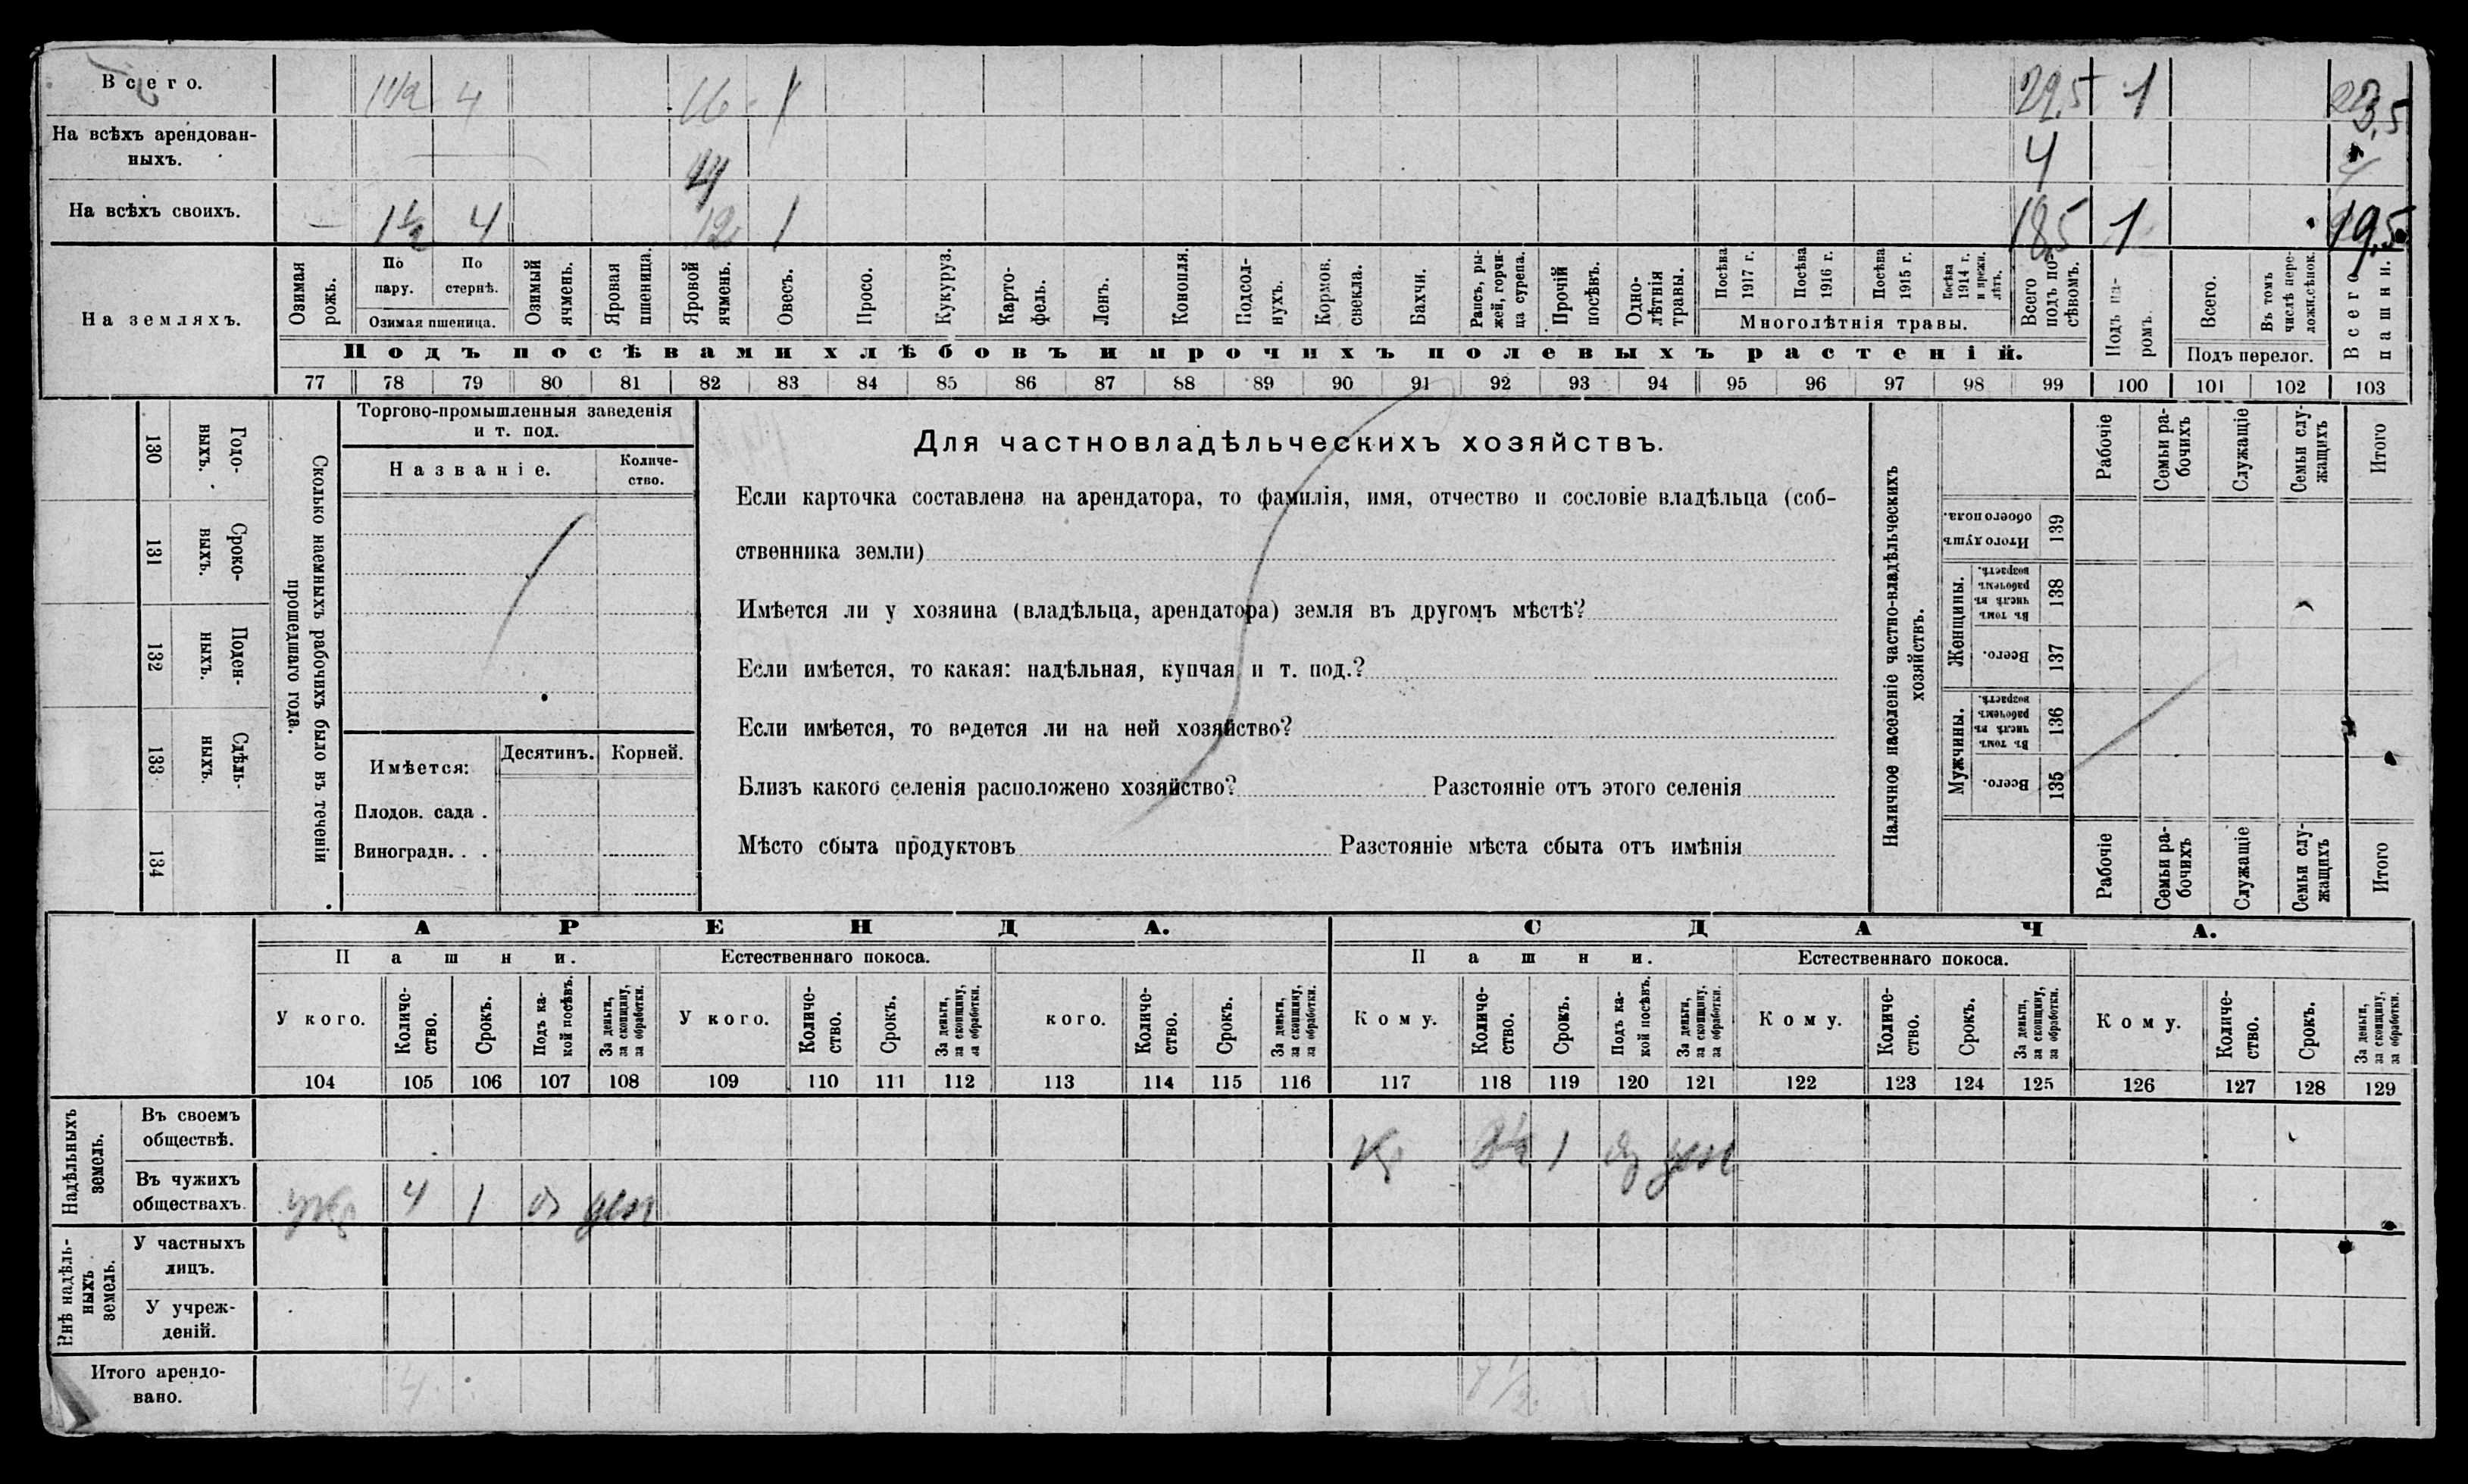 Всего. 1 1/2 4 16 1 22,5 1 23,5
На всѣхъ арендован-
ныхъ. 4 4 4
На всѣхъ своихъ. — 1 1/2 4 12 1 18,5 1 19,5
На земляхъ.
Озимая рожь.
По пару.
По стернѣ.
Озимая пшеница.
Озимый ячмень.
Яровая пшеница.
Яровой ячмень.
Овесъ.
Просо.
Кукуруз.
Карто-
фель.
Ленъ.
Конопля.
Подсол-
нухъ.
Кормов. свекла.
Бахчи.
Рапсъ, ры-
жей, горчи-
ца сурепа.
Прочій посѣвъ.
Одно-
лѣтнія травы.
Посѣва 1917 г.
Посѣва 1916 г.
Посѣва 1915 г.
Посѣва 1914 г. и прежн. лѣтъ.
Многолѣтнія травы.
Всего подъ по-
сѣвомъ.
Подъ па-
ромъ.
Всего.
Въ томъ числѣ пере-
ложн.сѣнок.
Подъ перелог.
Всего пашни.
Подъ посѣвами хлѣбовъ и прочихъ полевыхъ растеній.
77 78 79 80 81 82 83 84 85 86 87 88 89 90 91 92 93 94 95 96 97 98 99 100 101 102 103
130 Годо-
ныхъ.
131 Сроко-
ныхъ.
132 Поден-
ныхъ.
133 Сдѣль-
ныхъ.
134
Сколько наемныхъ рабочихъ было въ теченіи
прошедшаго года.
Торгово-промышленныя заведенія
и т. под.
Названіе. Количе-
ство.
Имѣется: Десятинъ. Корней.
Плодов. сада .
Виноградн. . .
Для частновладѣльческихъ хозяйствъ.
Если карточка составлена на арендатора, то фамилія, имя, отчество и сословіе владѣльца (соб-
ственника земли)
Имѣется ли у хозяина (владѣльца, арендатора) земля въ другомъ мѣстѣ?
Если имѣется, то какая: надѣльная, купчая и т. под.?
Если имѣется, то ведется ли на ней хозяйство?
Близъ какого селенія расположено хозяйство? Разстояніе отъ этого селенія
Мѣсто сбыта продуктовъ Разстояніе мѣста сбыта отъ имѣнія
Наличное населеніе частно-владѣльческихъ
хозяйствъ.
Рабочіе
Семьи ра-
бочихъ
Служащіе
Семьи слу-
жащихъ
Итого
Итого душъ обоего пола. 139
Женщины.
Въ томъ числѣ въ рабочемъ возрастѣ. 138
Всего. 137
Мужчины.
Въ томъ числѣ въ рабочемъ возрастѣ. 136
Всего. 135
Рабочіе
Семьи ра-
бочихъ
Служащіе
Семьи слу-
жащихъ
Итого
АРЕНДА. СДАЧА.
Пашни. Естественнаго покоса. Пашни. Естественнаго покоса.
У кого. Количе-
ство. Срокъ. Подъ ка-
кой посѣвъ. За деньги, за скопщину, за обработки.
У кого. Количе-
ство. Срокъ. За деньги, за скопщину, за обработки.
кого. Количе-
ство. Срокъ. За деньги, за скопщину, за обработки.
Кому. Количе-
ство. Срокъ. Подъ ка-
кой посѣвъ. За деньги, за скопщину, за обработки.
Кому. Количе-
ство. Срокъ. За деньги, за скопщину, за обработки.
Кому. Количе-
ство. Срокъ. За деньги, за скопщину, за обработки.
104 105 106 107 108 109 110 111 112 113 114 115 116 117 118 119 120 121 122 123 124 125 126 127 128 129
Надѣльныхъ
земель.
Въ своемъ
обществѣ. Кр 1 ден
Въ чужихъ
обществахъ. 4 1 оз ден
Внѣ надѣль-
ныхъ
земель.
У частныхъ
лицъ.
У учреж-
деній.
Итого арендо-
вано. 4